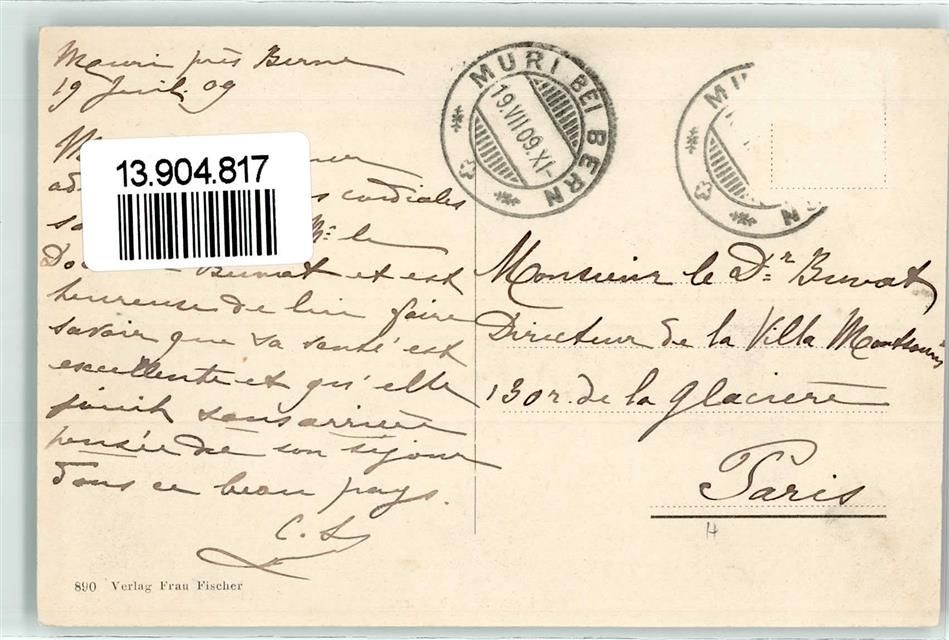 Muri près Berne
19 Juil. 09
13.904.817
cordiales
Mr le
Buvat et est
heureuse de lui faire
savoir que sa santé est
excellente et qu'elle
jouit sans arrière
pensée de son séjour
dans ce beau pays.
C. S
890 Verlag Frau Fischer
MURI BEI BERN
19.VII.09.XI-
Monsieur le Dr Buvat
Directeur de la Villa Montsouris
130 r. de la Glacière
Paris
H